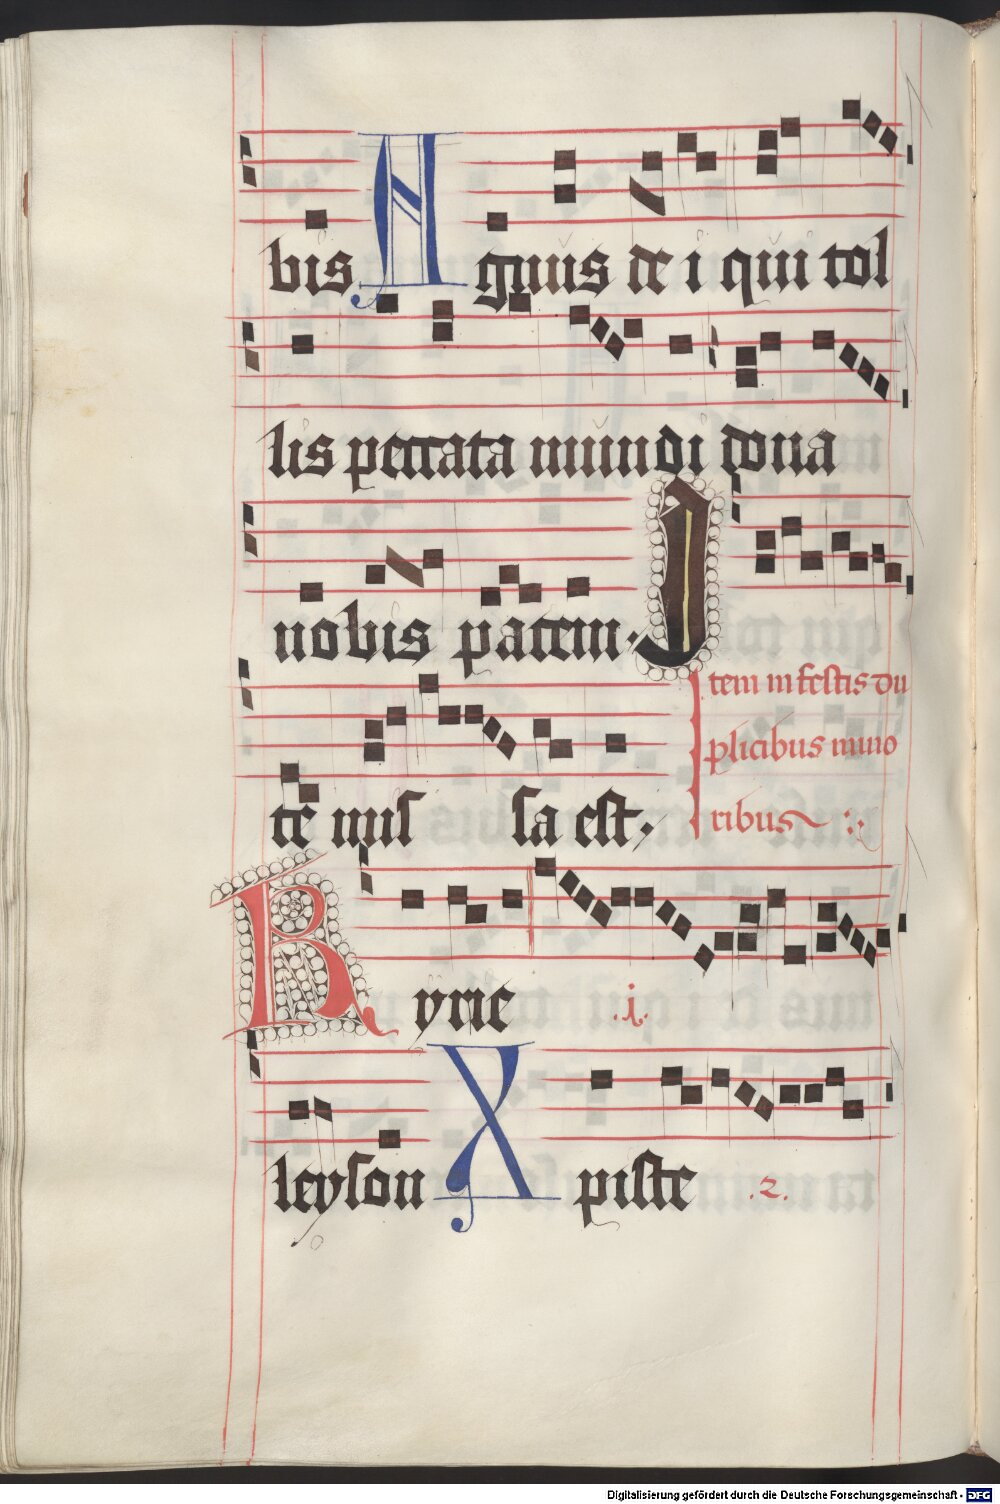 bis Agnus de i qui tol
lis peccata mundi dona
nobis pacem. I
tem in festis du
plicibus mino
ribus
te mis sa est.
Kyrie .i.
leyson Xpiste .2.
Digitalisierung gefördert durch die Deutsche Forschungsgemeinschaft - DFG